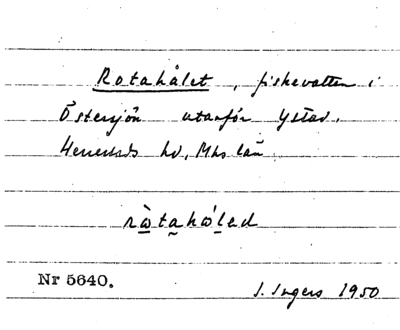 Rotahålet, fiskevatten i
Östersjön utanför Ystad.
Herrestads hd, Mhs län
rὼtahώ̨lad
Nr 5640.
I. Ingers 1950